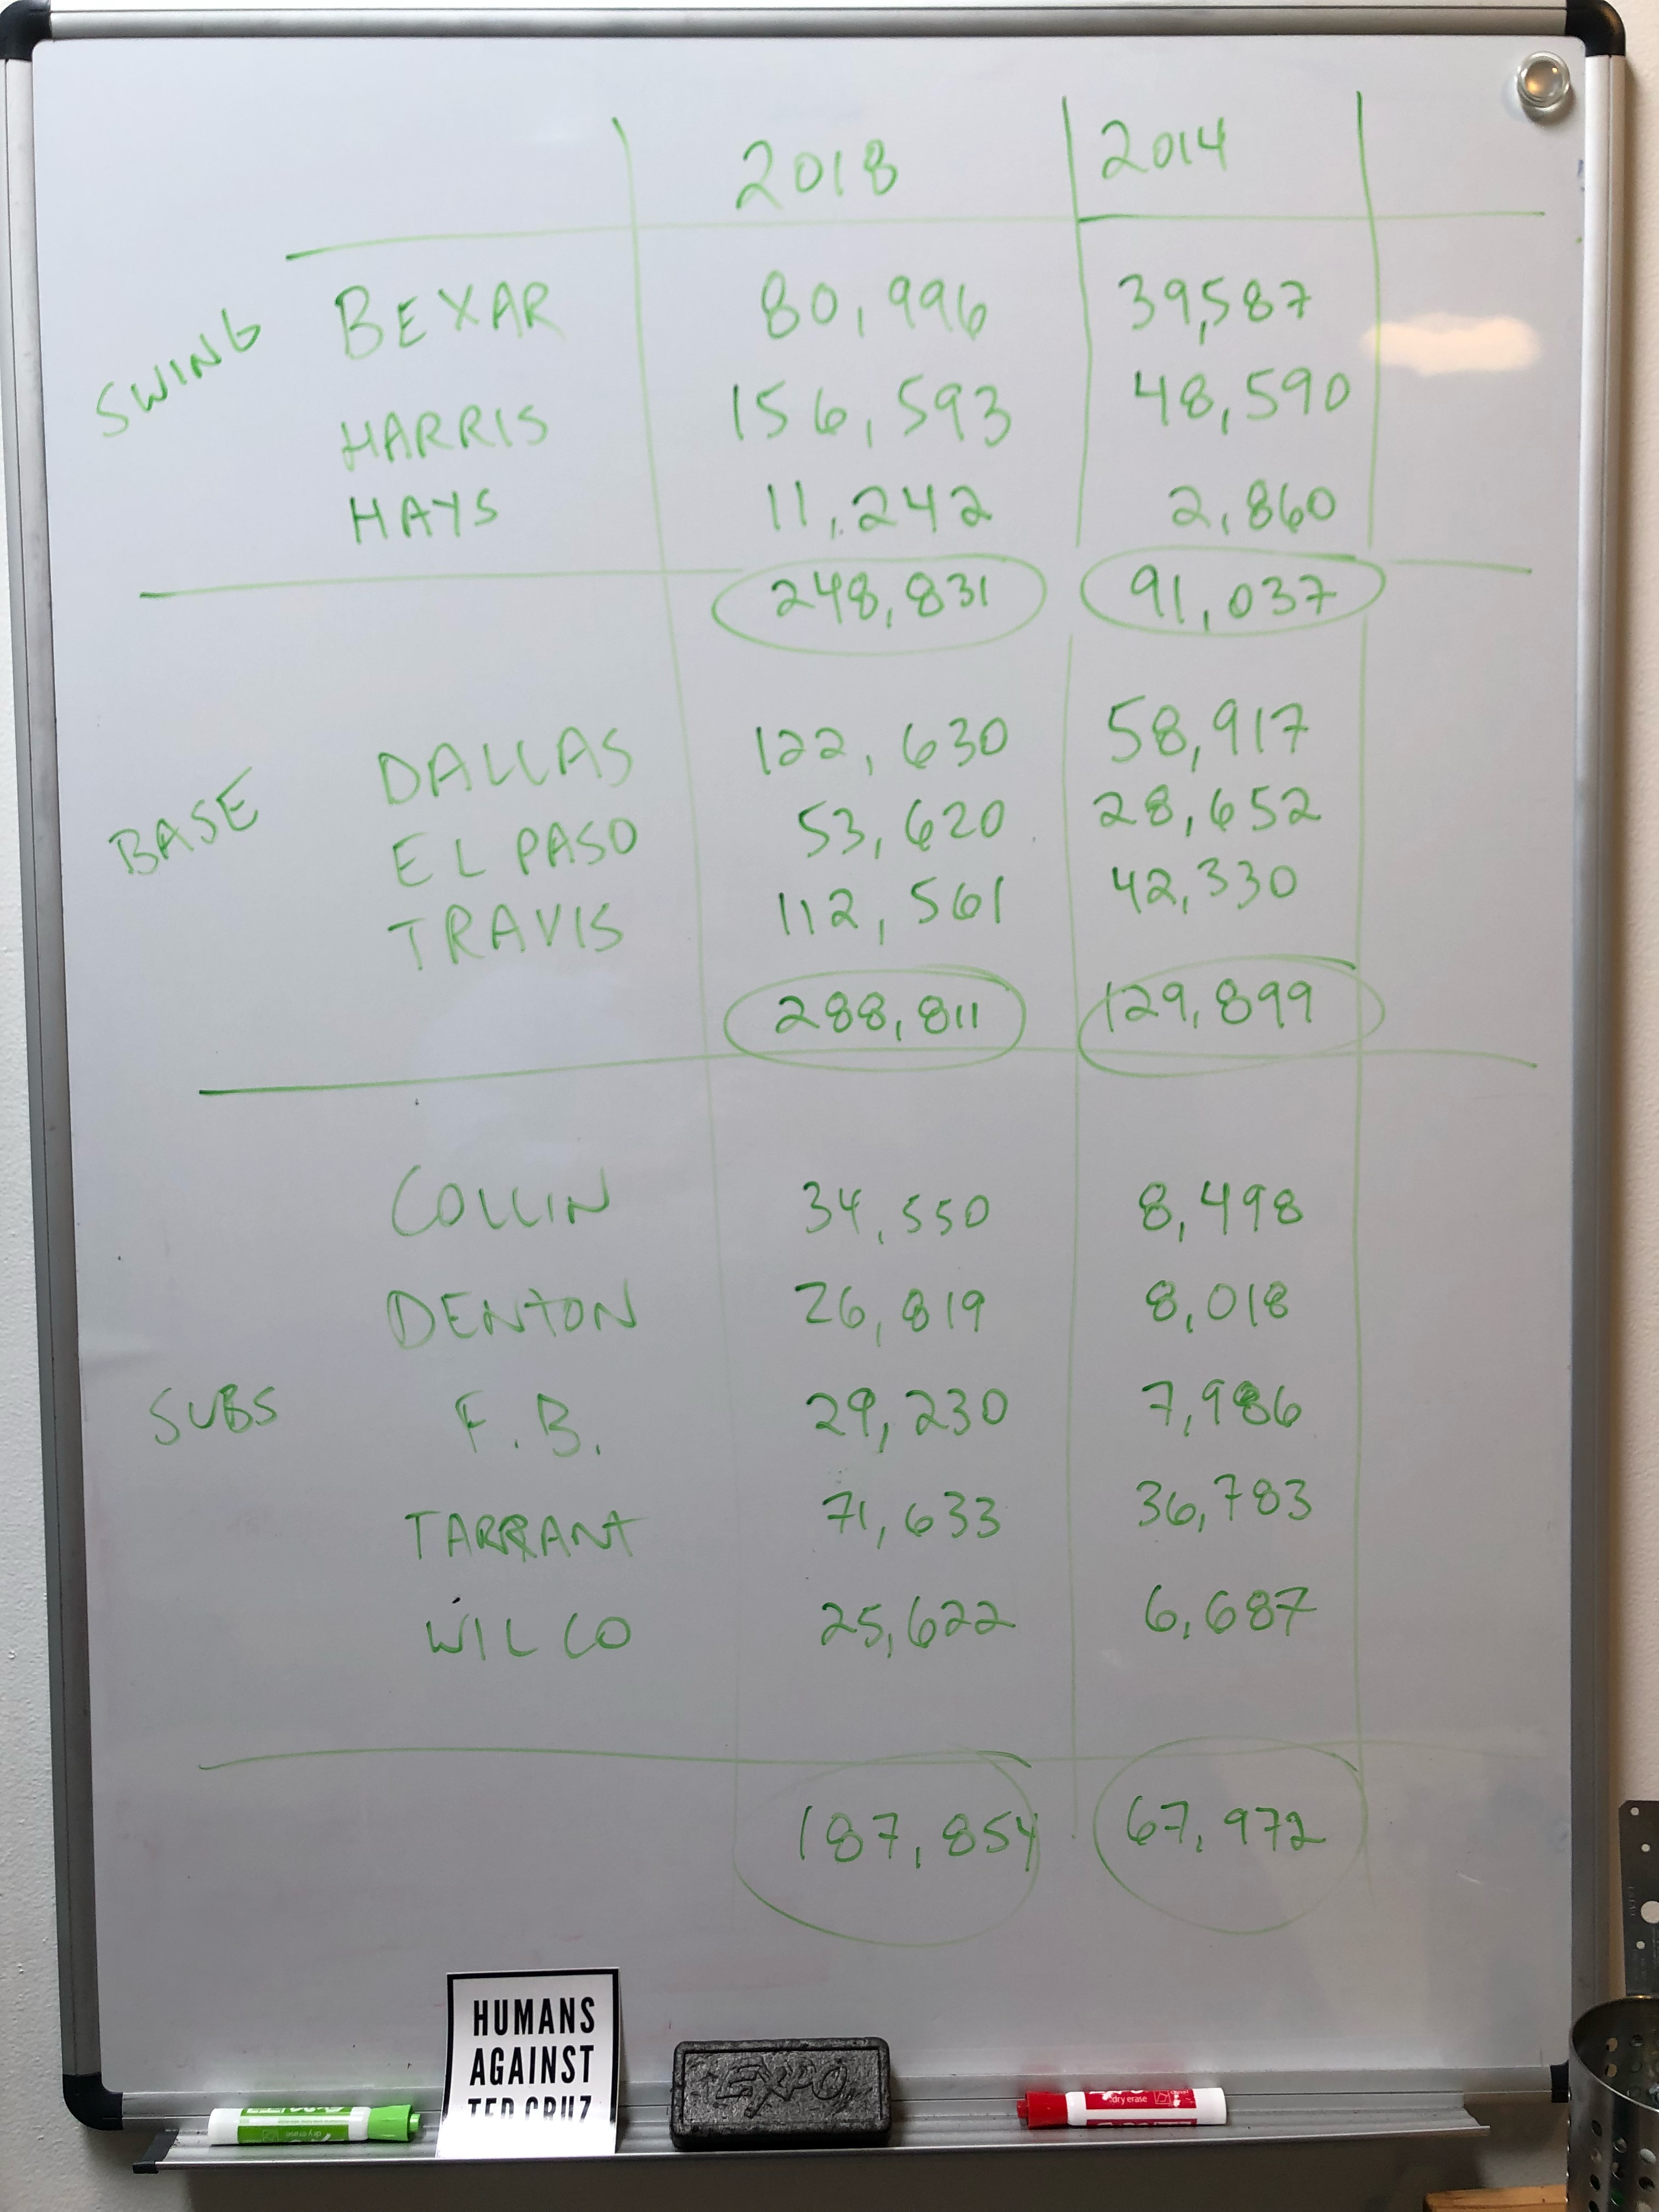 2018 2014
SWING
BEXAR 80,996 39,587
HARRIS 156,593 48,590
HAYS 11,242 2,860
248,831 91,037
BASE
DALLAS 122,630 58,917
EL PASO 53,620 28,652
TRAVIS 112,561 42,330
288,811 129,899
COLLIN 34,550 8,498
DENTON 26,819 8,018
SUBS
F.B. 29,230 7,986
TARRANT 71,633 36,783
WILCO 25,622 6,687
187,854 67,972
HUMANS
AGAINST
TED CRUZ
EXPO
dry erase
dry erase